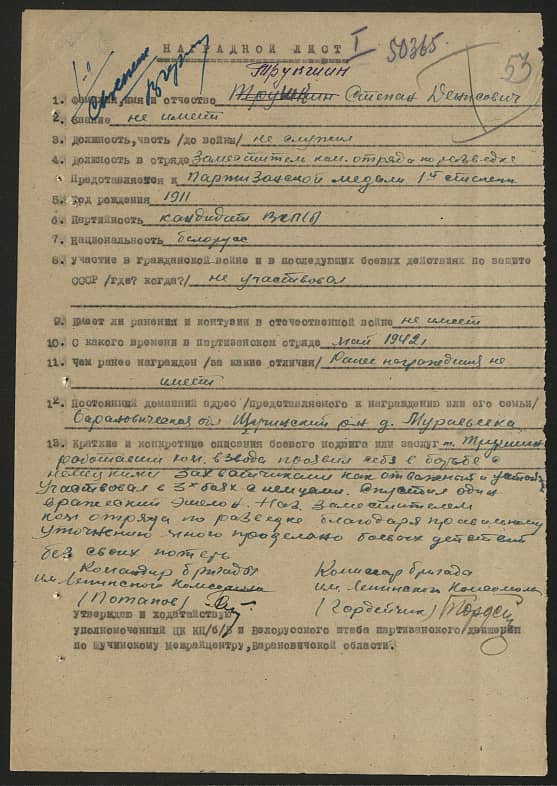 НАГРАДНОЙ ЛИСТ I 50365
53
Трунтин
1. Фамилия, имя и отчество Степан Денисович
2. Звание не имеет
3. Должность, часть /до войны/ не служил
4. Должность в отряде Заместитель ком. отряда по разведке
Представляется к Партизанской медали 1й степени
5. Год рождения 1911
6. Партийность кандидат ВКП(б)
7. Национальность белорусс
8. Участие в гражданской войне и в последующих боевых действиях по защите
СССР /где? когда?/ не участвовал
9. Имеет ли ранения и контузии в отечественной войне не имеет
10. С какого времени в партизанском отряде май 1942г
11. Чем ранее награжден /за какие отличия/ Ранее награждения не
имеет
12. Постоянный домашний адрес /представляемого к награждению или его семьи/
Барановическая обл Щучинский р-н д.
13. Краткие и конкретные описания боевого подвига или заслуг т.
работавши ком. взвода проявил себя в борьбе с
немецкими захватчиками как отважный и
Участвовал в 3х боях с немцами. Спустил один
вражеский эшелон. Заместителем
ком отряда по разведке благодаря правильному
уточнению много проделано боевых действий
без своих потерь
Командир бригады Комиссар бригады
им. Ленинского Комсомола им. Ленинского Комсомола
(Потапов) (Гордейчик)
Утверждаю и ходатайствую
уполномоченный ЦК КП/б/Б и Белорусского штаба партизанского движения
по Щучинскому Межрайцентру, Барановичской области.